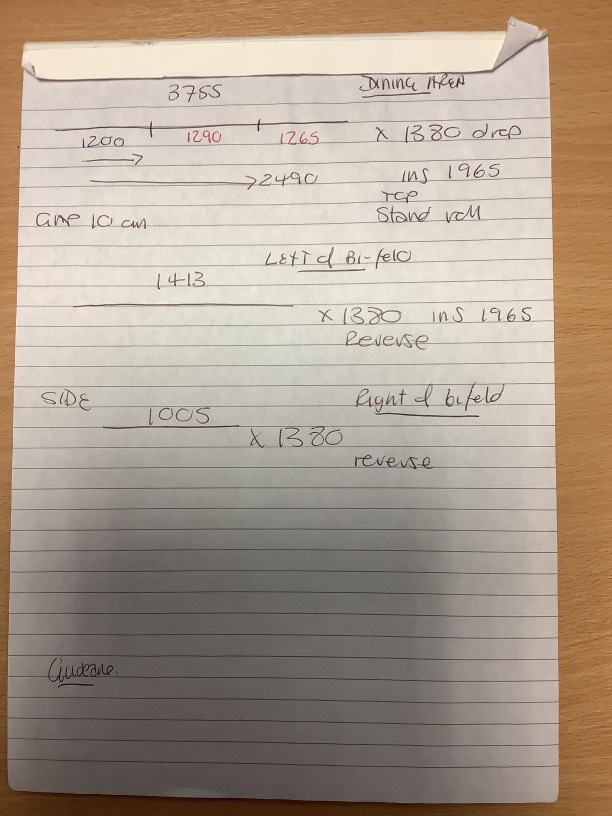 3755 Dining AREA
1200 1290 1265 x 1380 drop
2490 ins 1965
TOP
GAP 10 cm Stand roll
LEFT of Bi-fold
1413
x 1380 ins 1965
Reverse
SIDE Right of bifold
1005
x 1380
reverse